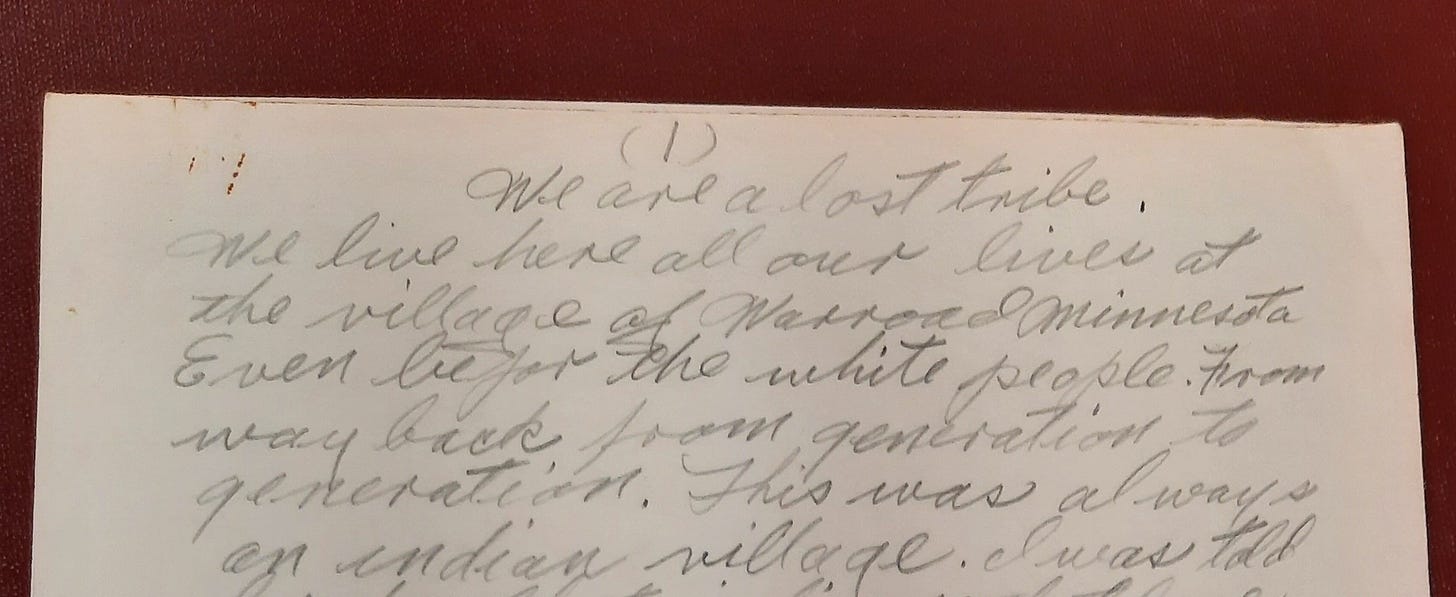 (1)
We are a lost tribe.
We live here all our lives at
the village of Warroad Minnesota
Even befor the white people. From
way back from generation to
generation. This was always
an indian village. I was told